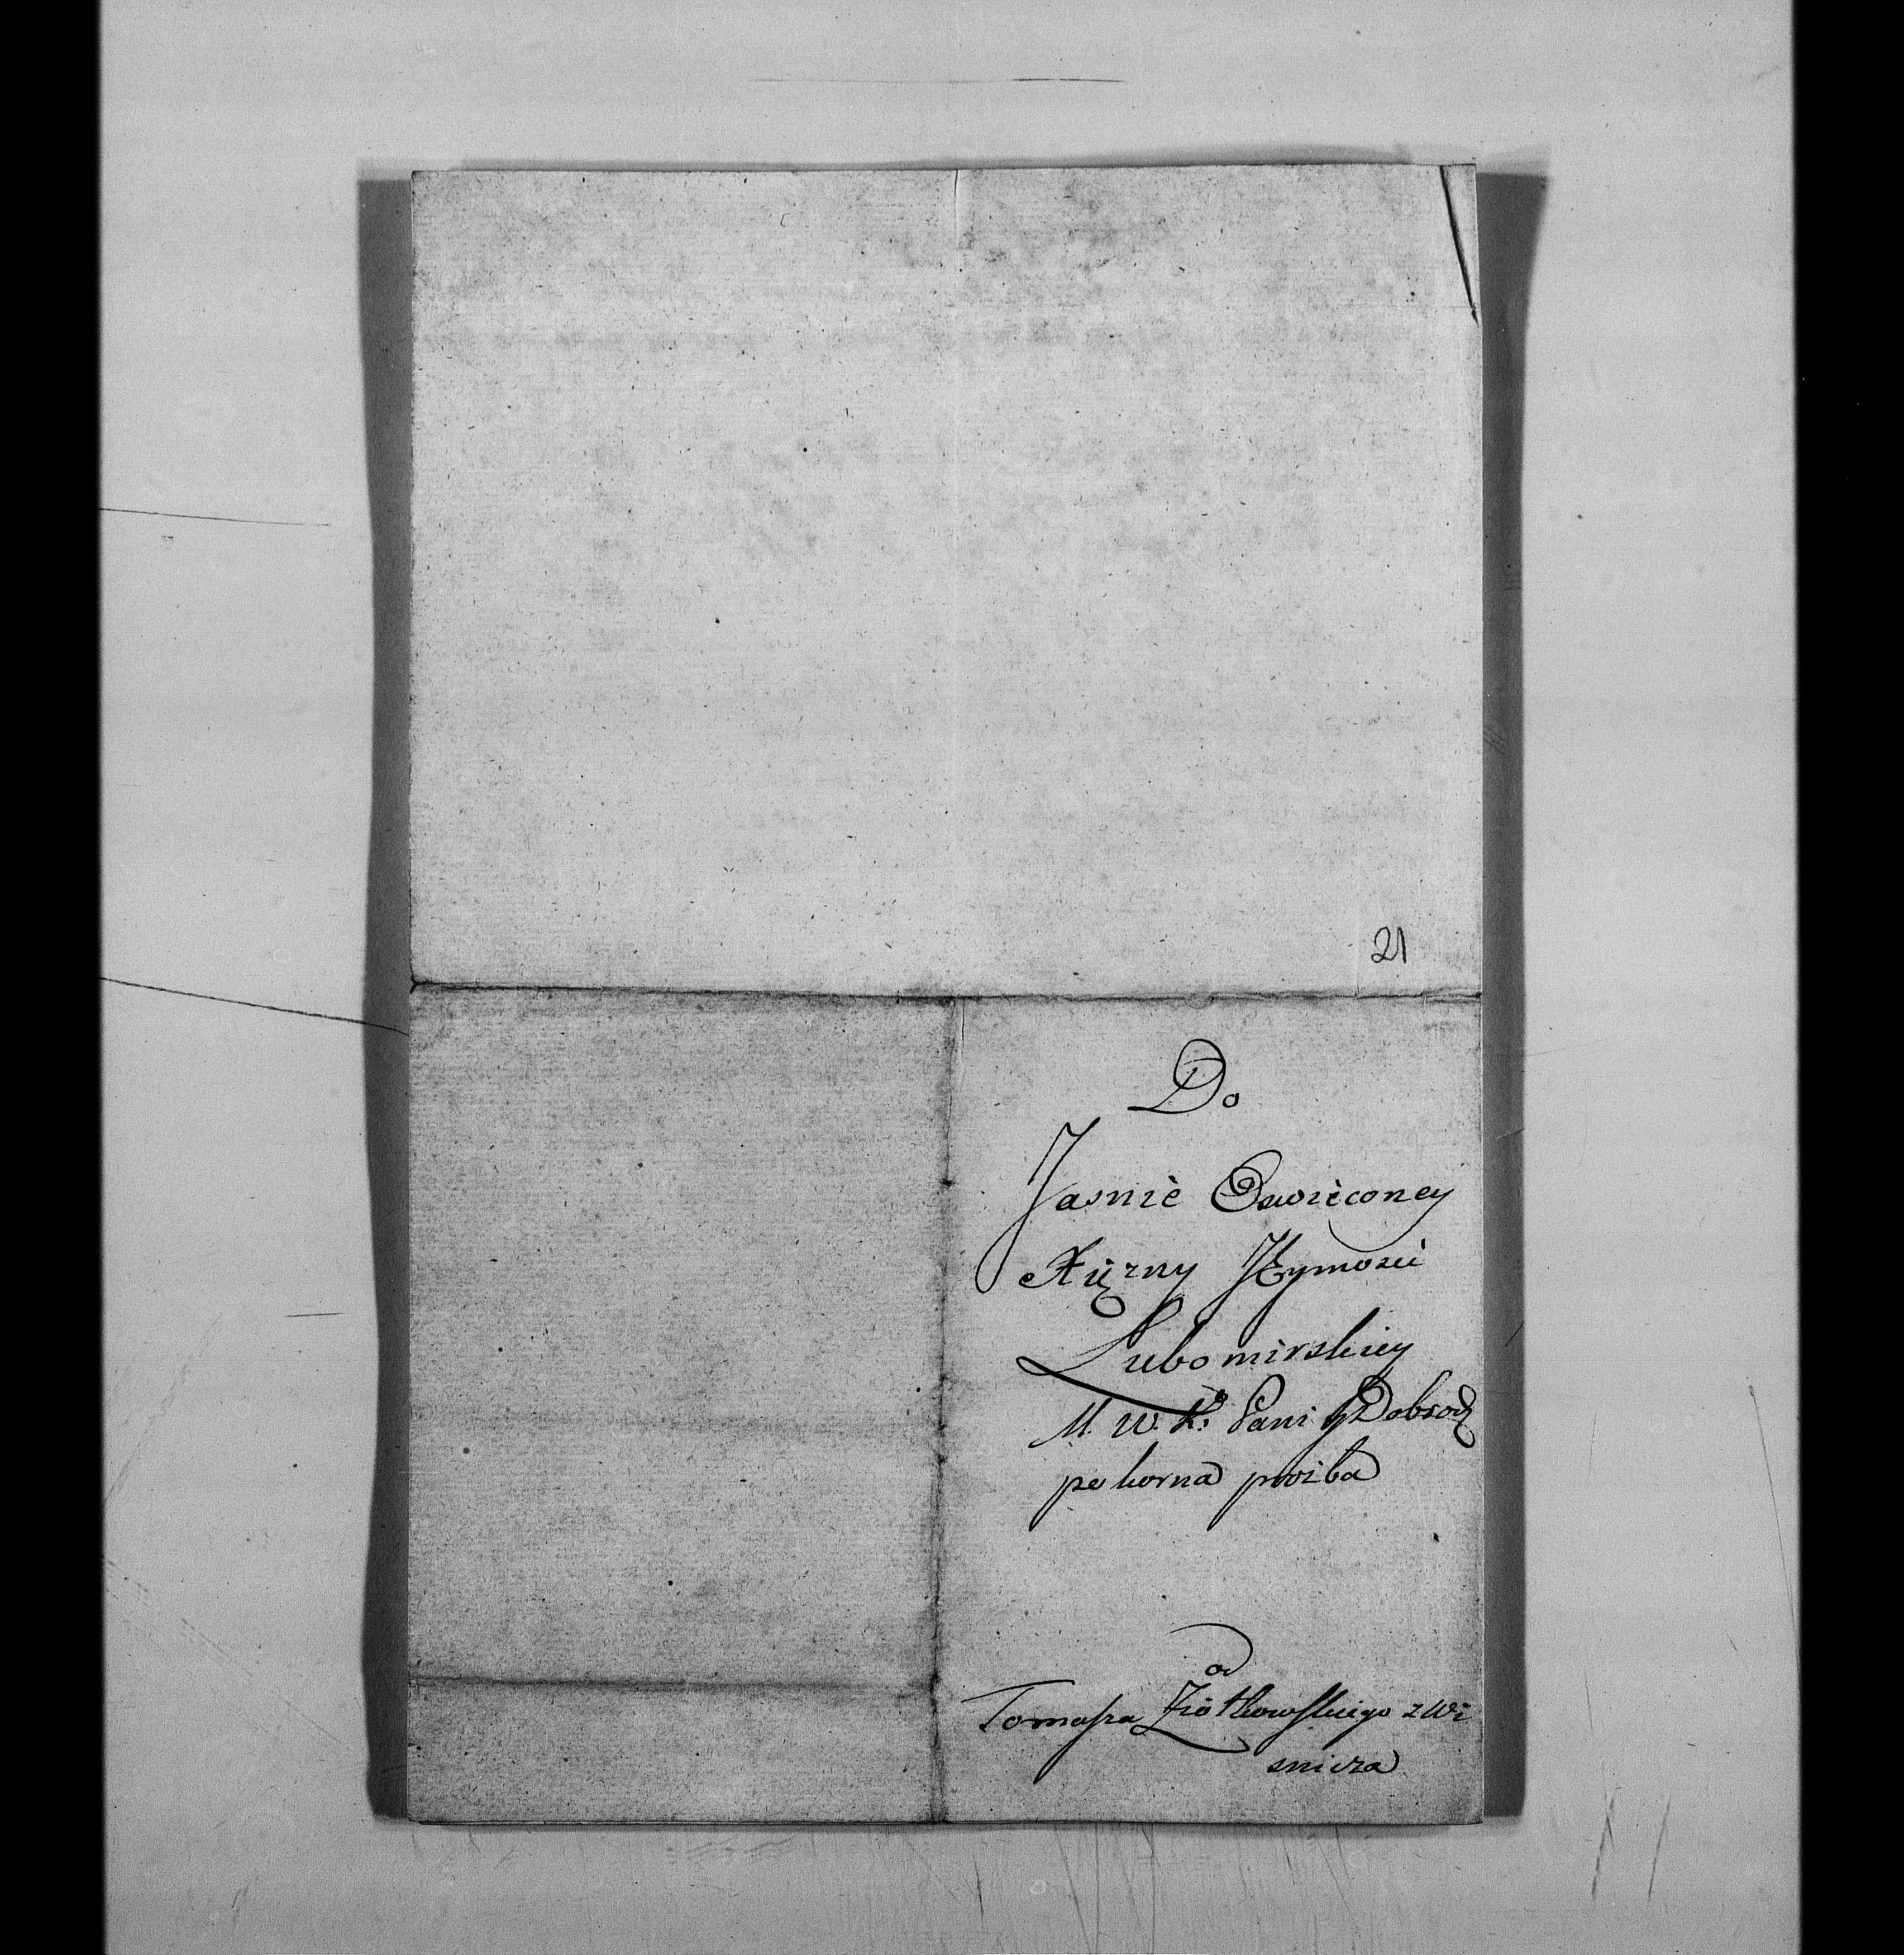 21
Do
Jasnie Oswieconey
Xiężny Jeymosci
Lubomirskiey
M. W. K: Pani y Dobrodz
pokorna prozba
od
Tomasza Ziółkowskiego z Wi
snicza